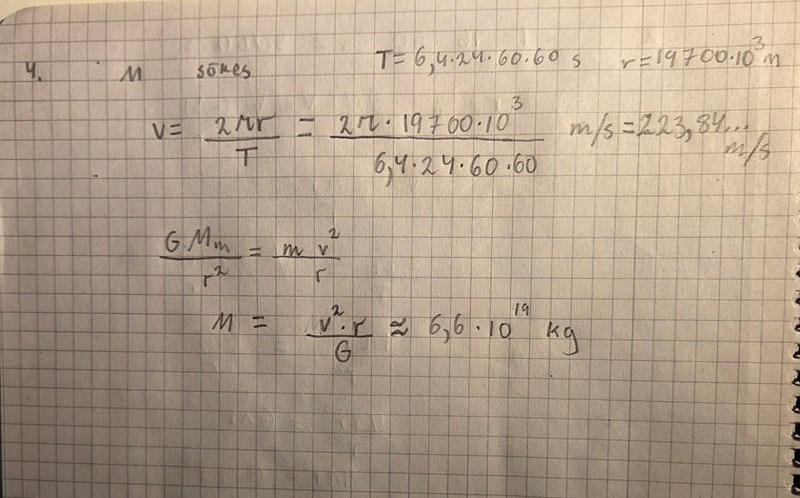 4. M sökes T = 6,4·24·60·60 s r = 19700·10³ m
v = 2πr / T = 2π·19700·10³ / 6,4·24·60·60 m/s = 223,84... m/s
G·Mm / r² = m v² / r
M = v²·r / G ≈ 6,6·10¹⁹ kg